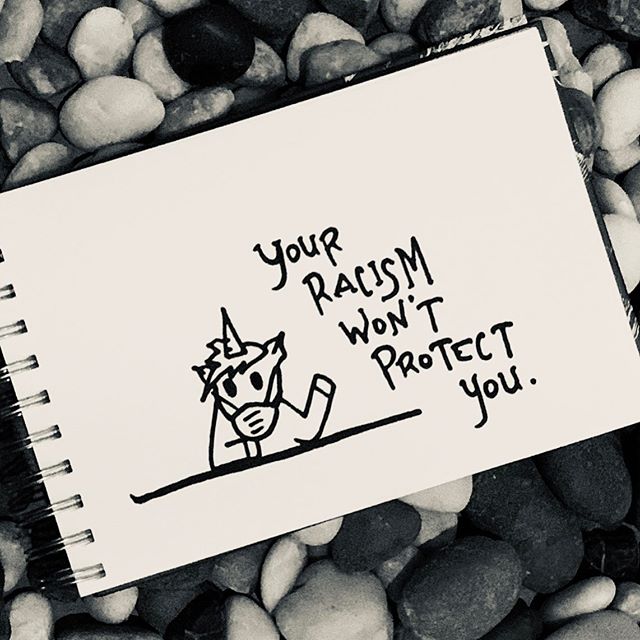 YOUR
RACISM
WON'T
PROTECT
YOU.